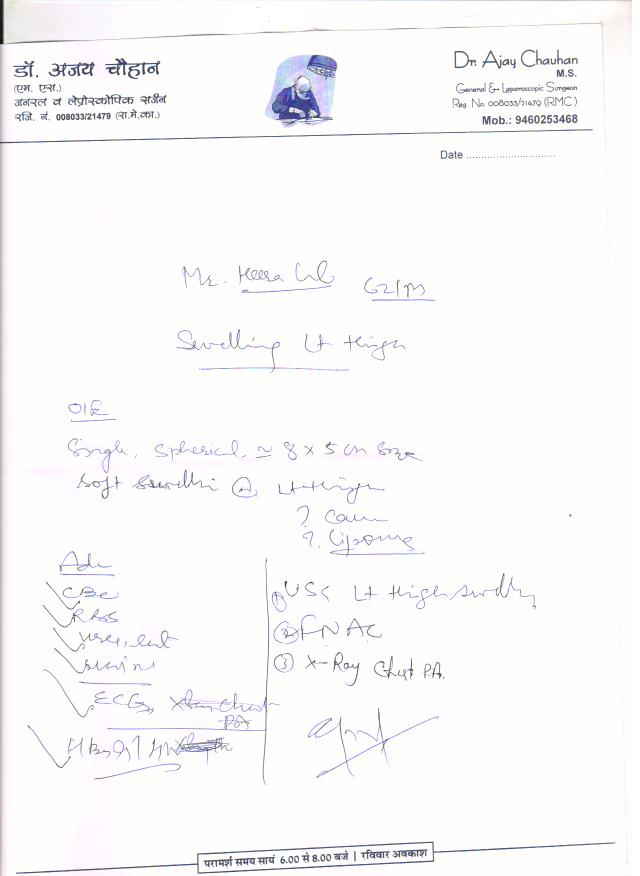 डॉ. अजय चौहान
(एम. एस.)
जनरल व लेप्रोस्कोपिक सर्जन
रजि. नं. 008033/21479 (रा.मे.का.)
Dr. Ajay Chauhan
M.S.
General & Laparoscopic Surgeon
Reg. No. 008033/21479 (RMC)
Mob.: 9460253468
Date ..............................
Mr. Heera Lal 62/M
Swelling Lt thigh
O/E
Single, Spherical, ≃ 8 x 5 cm size
Soft Lt thigh
?
? Lipoma
Adv
CBC
RBS
Urea,
ECG,
① USG Lt thigh swelling
② FNAC
③ X-Ray Chest PA.
परामर्श समय सायं 6.00 से 8.00 बजे | रविवार अवकाश